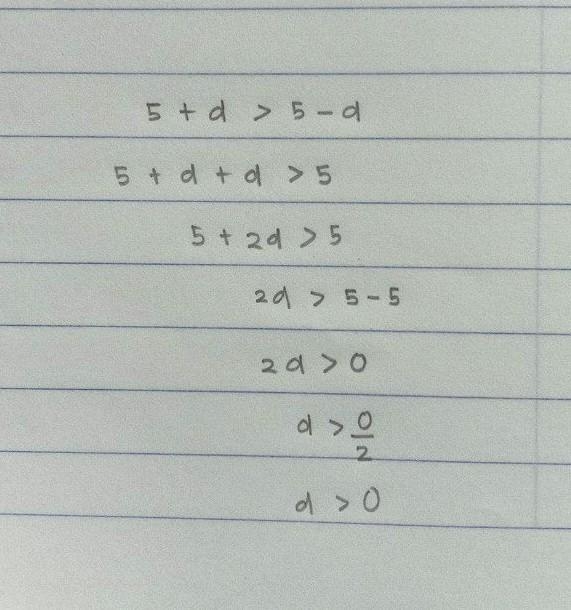 5 + d > 5 - d
5 + d + d > 5
5 + 2d > 5
2d > 5 - 5
2d > 0
d > 0/2
d > 0